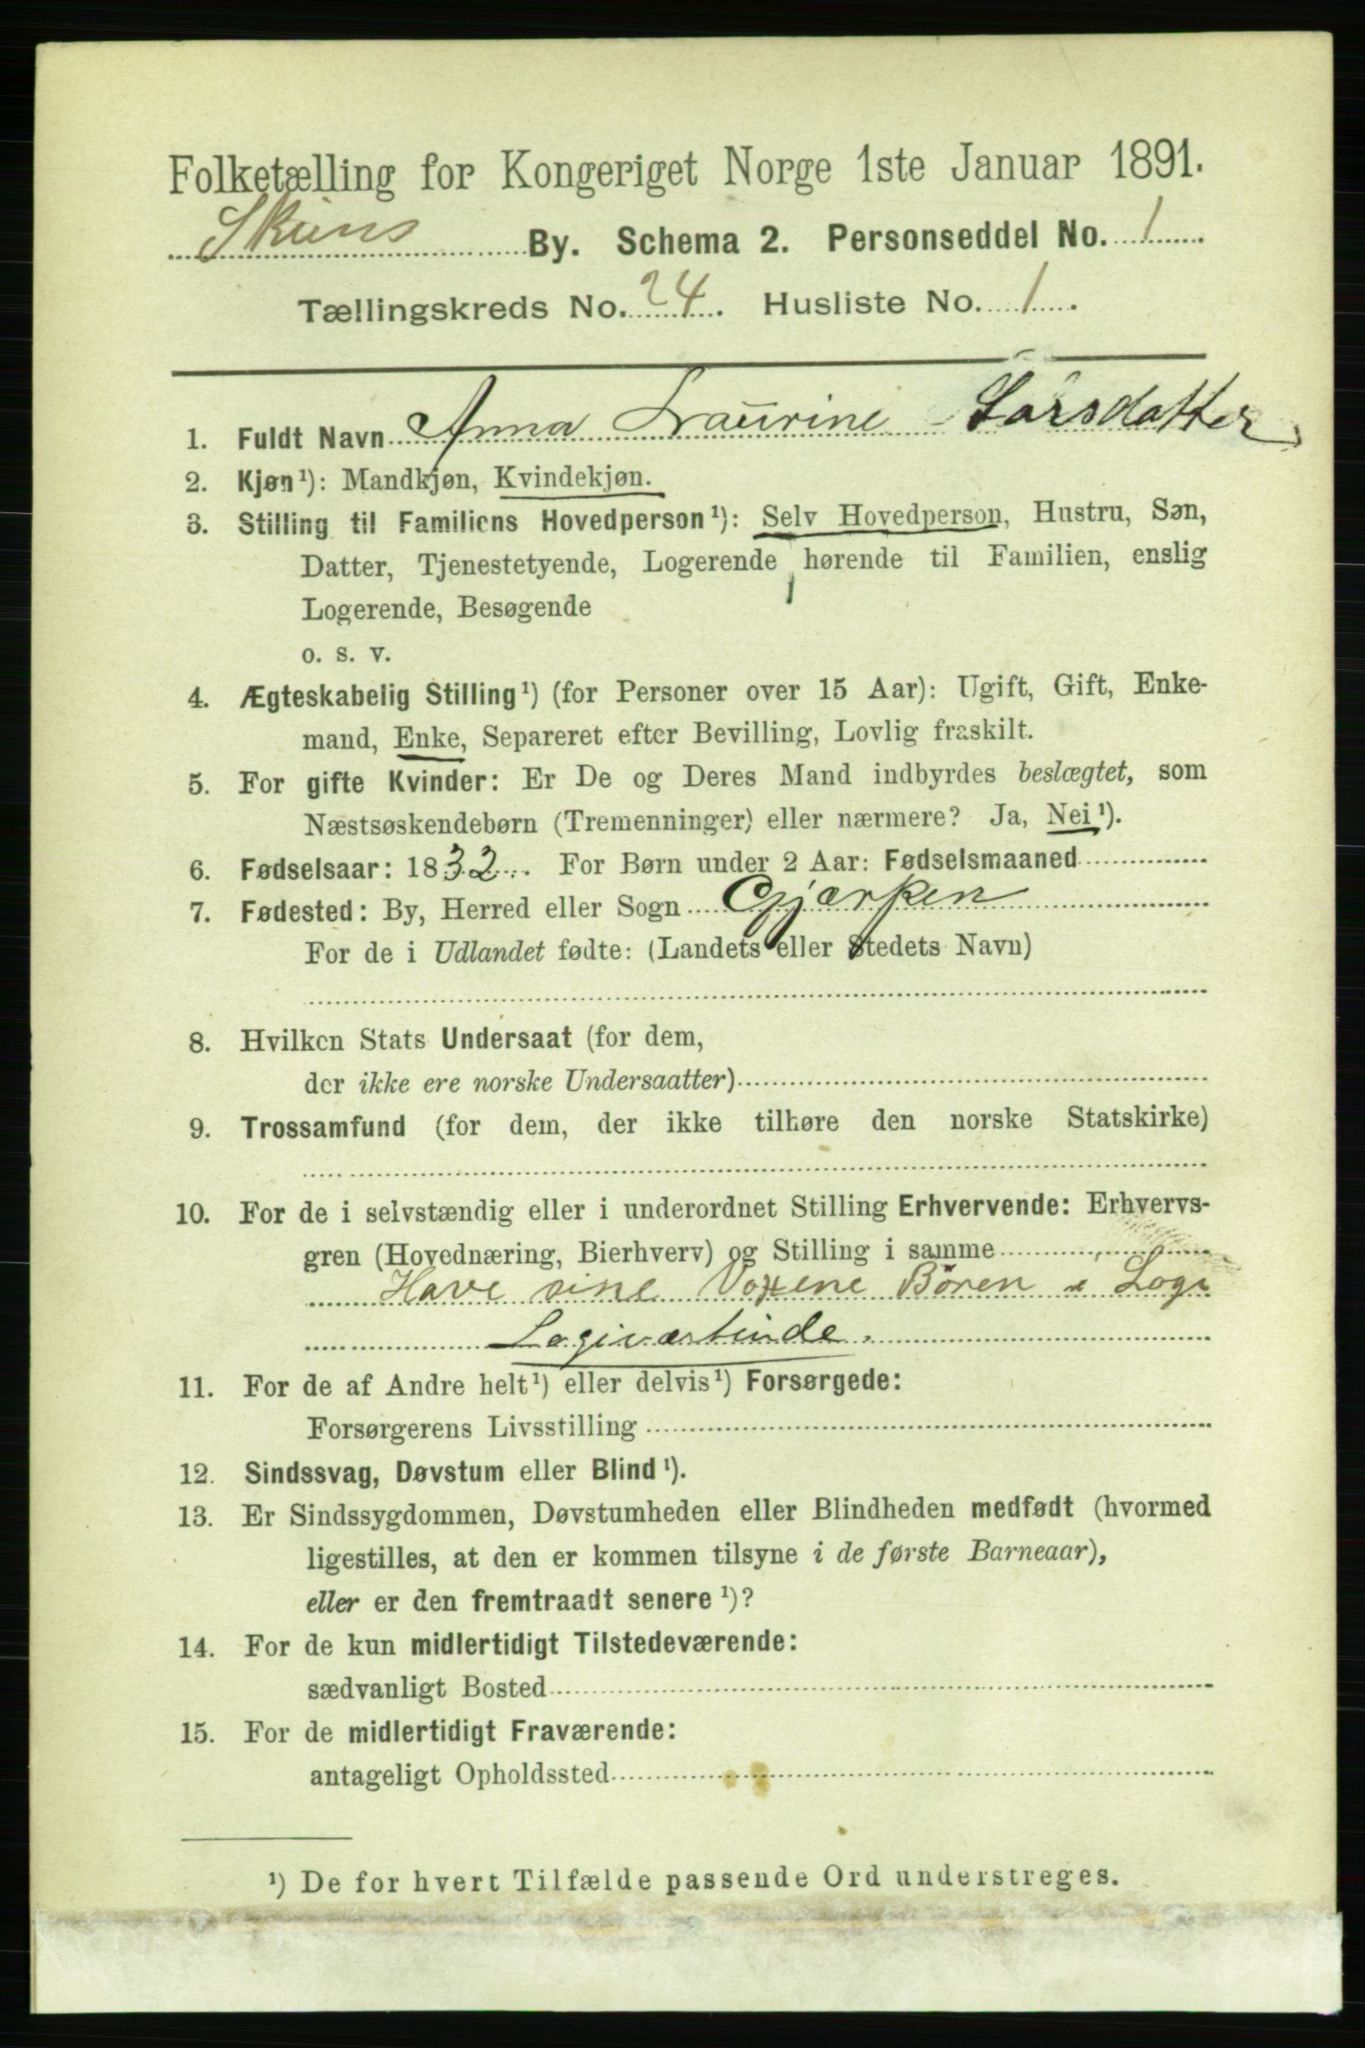 Folketælling for Kongeriget Norge 1ste Januar 1891.
Skiens By. Schema 2. Personseddel No. 1
Tællingskreds No. 24. Husliste No. 1.
1. Fuldt Navn Anna Laurine Larsdatter
2. Kjøn¹): Mandkjøn, Kvindekjøn.
3. Stilling til Familiens Hovedperson¹): Selv Hovedperson, Hustru, Søn,
Datter, Tjenestetyende, Logerende hørende til Familien, enslig
Logerende, Besøgende
o. s. v.
4. Ægteskabelig Stilling¹) (for Personer over 15 Aar): Ugift, Gift, Enke-
mand, Enke, Separeret efter Bevilling, Lovlig fraskilt.
5. For gifte Kvinder: Er De og Deres Mand indbyrdes beslægtet, som
Næstsøskendebørn (Tremenninger) eller nærmere? Ja, Nei¹).
6. Fødselsaar: 1832. For Børn under 2 Aar: Fødselsmaaned
7. Fødested: By, Herred eller Sogn Gjærpen
For de i Udlandet fødte: (Landets eller Stedets Navn)
8. Hvilken Stats Undersaat (for dem,
der ikke ere norske Undersaatter)
9. Trossamfund (for dem, der ikke tilhøre den norske Statskirke)
10. For de i selvstændig eller i underordnet Stilling Erhvervende: Erhvervs-
gren (Hovednæring, Bierhverv) og Stilling i samme
Have sine Voxene Bören i Logi
Logiværtinde.
11. For de af Andre helt¹) eller delvis¹) Forsørgede:
Forsørgerens Livsstilling
12. Sindssvag, Døvstum eller Blind¹).
13. Er Sindssygdommen, Døvstumheden eller Blindheden medfødt (hvormed
ligestilles, at den er kommen tilsyne i de første Barneaar),
eller er den fremtraadt senere¹)?
14. For de kun midlertidigt Tilstedeværende:
sædvanligt Bosted
15. For de midlertidigt Fraværende:
antageligt Opholdssted
¹) De for hvert Tilfælde passende Ord understreges.